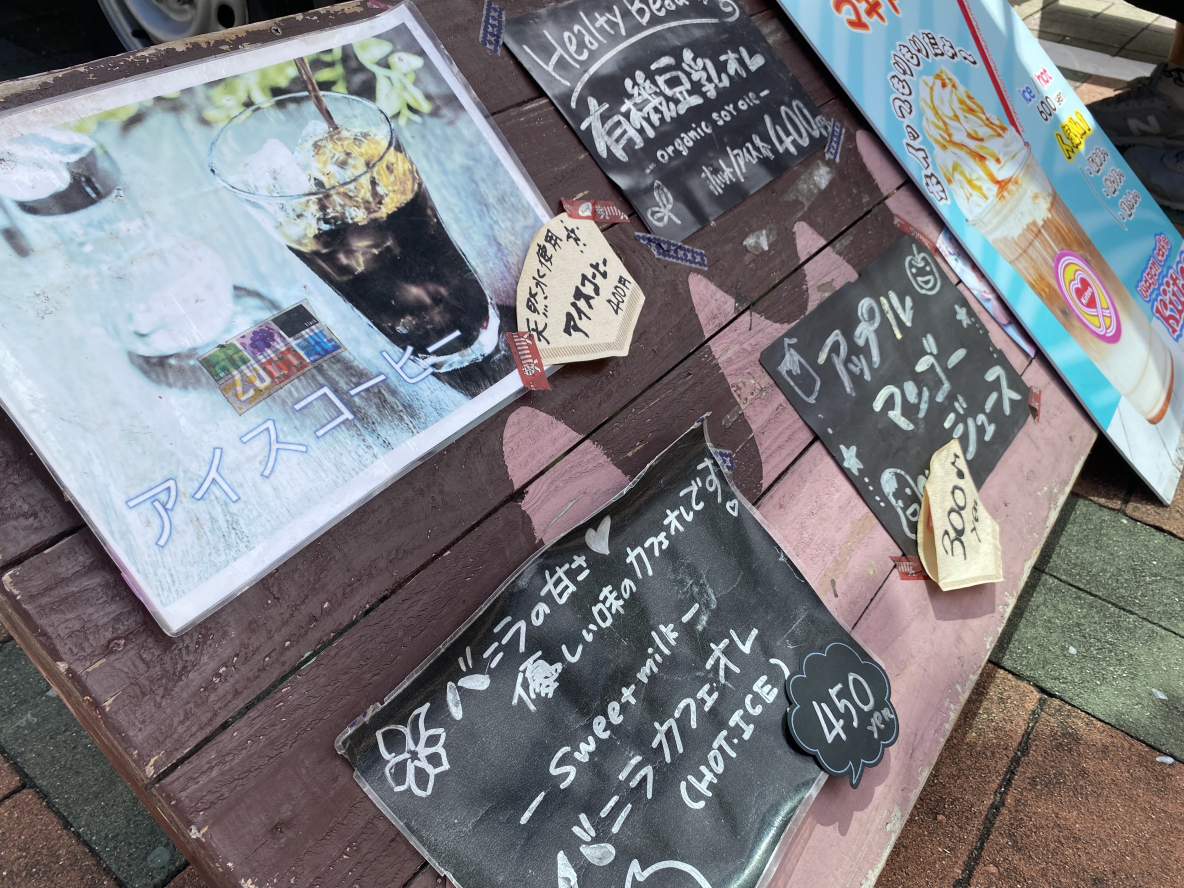 アイスコーヒー
天然水使用
アイスコーヒー
400円
Healty Beau
有機豆乳オレ
organic soy ole
ホット/アイス 400円
アップル
マンゴー
ジュース
300
yen
バニラの甘さ
優しい味のカフェオレです。
Sweet milk
バニラカフェオレ
(HOT・ICE)
450
yen
ice hot
600 yen
人気No.1